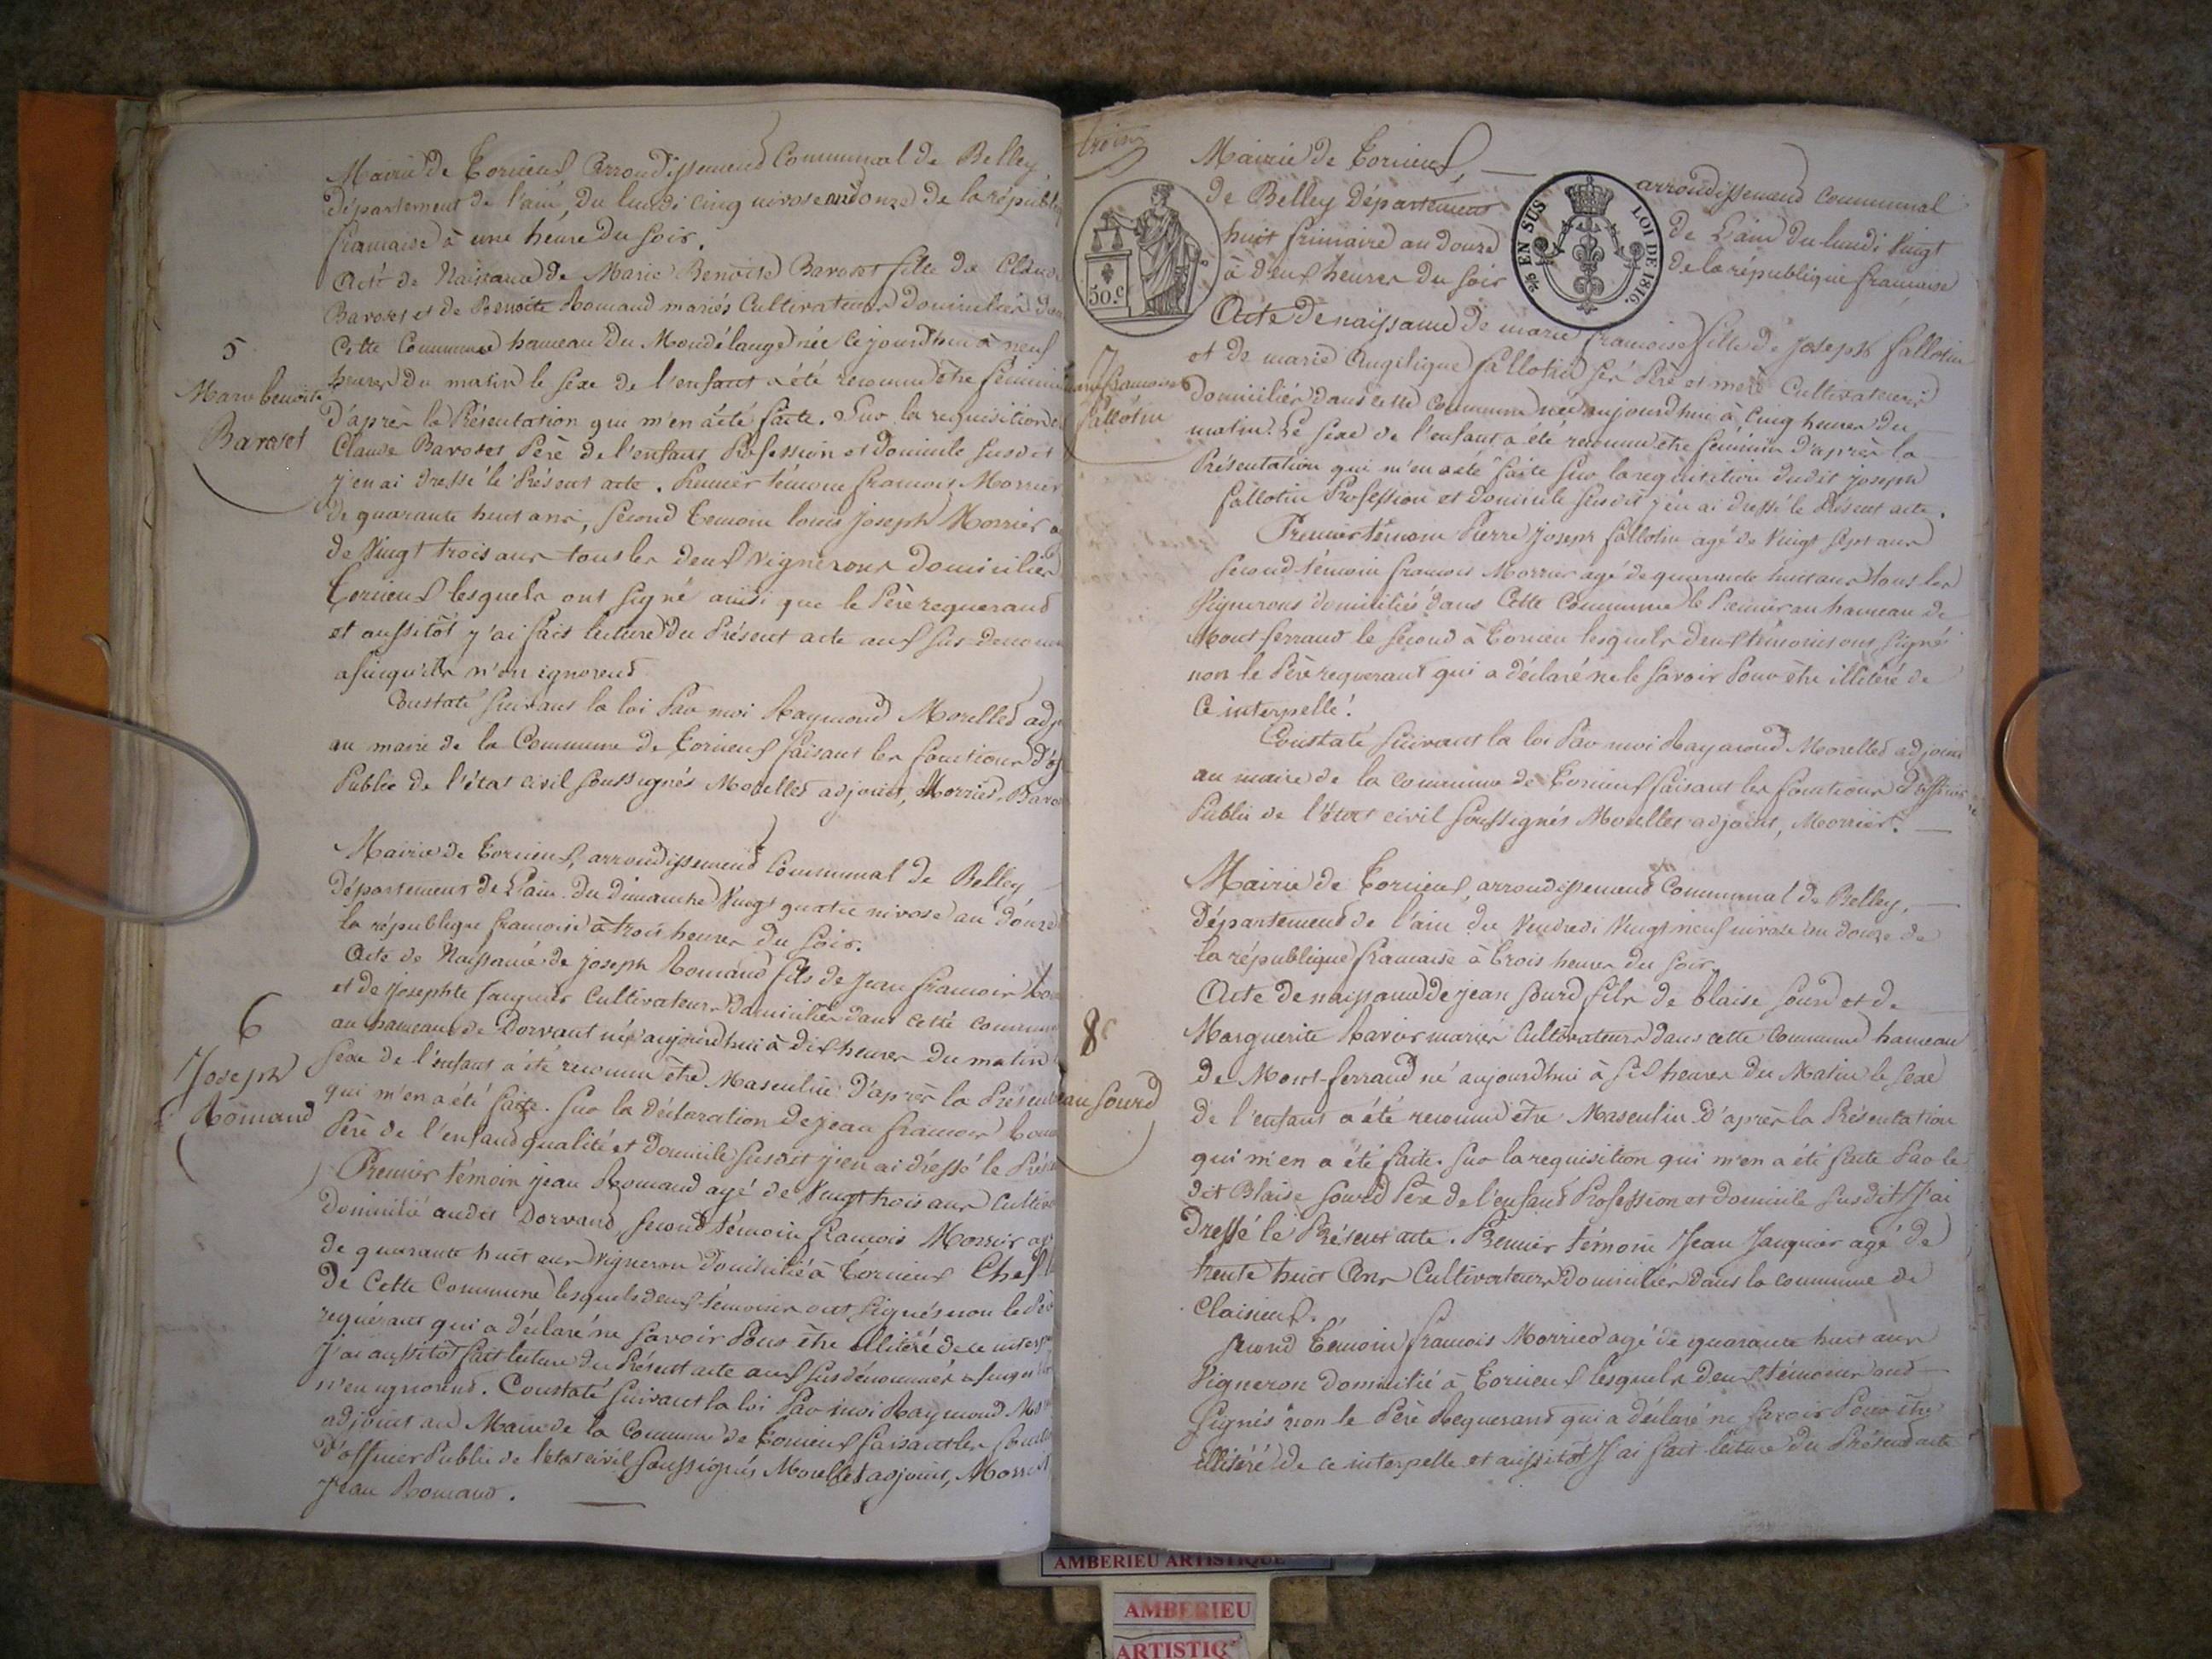 Mairie de Torcieux Arrondissement Communal de Belley
département de l'ain, Du lundi cinq nivose an douze de la républi
francaise à une heure du soir.
Acte de Naissance de Marie Benoite Baroset fille de Claude
Baroset et de Benoite Romand mariés Cultivateurs Domiciliés
Cette Commune hameau Du Mondélange née Cejourd'hui à neuf
heures Du matin le sexe de l'enfant a été reconnu être féminin
5
Marie benoite
Baroset
D'après la Présentation qui m'en a été faite. Sur la requisition
Claude Baroset Père de l'enfant Profession et domicile susdit
j'en ai dressé le Présent acte. Premier témoin francois Morrier
de quarante huit ans, second temoin louis joseph Morrier
de Vingt trois ans tous les deux Vignerons domiciliés
Torcieux lesquels ont signé ainsi que le Père requerand
et aussitôt j'ai fait lecture du Présent acte aux sus
afin qu'ils n'en ignorend
Constaté suivant la loi Par moi Raymond Morellet adj
au maire de la Commune de Torcieux faisant les fonctions d'of
Public de l'état civil soussignés Morellet adjoint, Morrier, Baro
Mairie de Torcieux, arrondissement Communal de Belley
Département de L'ain Du dimanche Vingt quatre nivose an douze
la république francaise à trois heures du soir.
Acte de Naissance de joseph Romand fils de Jean francois
et de josephte Cultivateurs Domiciliés dans cette commune
au hameau de Dorvant né aujourd'hui à dix heures du matin
6
Joseph
Romand
sexe de l'enfant a été reconnu être Masculin D'après la Présent
qui m'en a été faite. Sur la déclaration de jean francois
Père de l'enfand qualité et domicile susdit j'en ai dréssé le Prés
Premier témoin jean Romand agé de Vingt trois ans Cultiv
domicilié audit Dorvand, second témoin francois Morrier ag
de quarante huit ans Vigneron domicilié à Torcieux Chef l
De Cette Commune lesquels deux témoins ont signés non le Père
requérant qui a déclaré ne savoir Pour être illitéré de ce interp
J'ai aussitôt fait lecture du Présent acte aux susdénommés
n'en ignorend. Constaté suivant la loi Par moi Raymond
adjoint au Maire de la Commune de Torcieux faisant les
d'officier Public de l'état civil soussignés Morellet adjoint, Morrier
Jean Romand.
Mairie de Torcieux, arrondissement communal
de Belley Département de L'ain Du lundi Vingt
huit frimaire an douze de la république francaise
à deux heures du soir
50.c
EN SUS
LOI DE 1816.
Acte de naissance de marie francoise fille de Joseph fallotin
et de marie Angelique fallotin ses Père et mere Cultivateurs
7
francoise
fallotin
domiciliés dans cette commune née aujourdhui à Cinq heures du
matin. Le sexe de l'enfant a été reconnu être féminin d'après la
Présentation qui m'en a été faite sur la requisition dudit joseph
fallotin Profession et domicile susdit j'en ai dressé le Présent acte.
Premier témoin Pierre joseph fallotin agé de Vingt sept ans
second témoin francois Morrier agé de quarante huit ans tous les
Vignerons domiciliés dans Cette Commune le Premier au hameau de
Mont-ferrand le second à Torcieu lesquels deux témoins ont signé
non le Père requerant qui a déclaré ne le savoir Pour être illitéré de
Ce interpellé.
Constaté suivant la loi Par moi Raymond Morellet adjoint
au maire de la commune de Torcieux faisant les fonctions d'officier
Public de l'état civil soussignés Morellet adjoint, Morrier.
Mairie de Torcieux arrondissement Communal de Belley,
Département de l'ain du Vendredi Vingt neuf nivose an douze de
la république francaise à trois heures du soir.
Acte de naissance de jean sourd fils de blaise sourd et de
8
Jean sourd
Marguerite Ravier mariés Cultivateurs dans cette Commune hameau
de Mont-ferrand né aujourdhui à six heures du Matin le sexe
de l'enfant a été reconnu être Masculin d'après la Présentation
qui m'en a été faite. sur la requisition qui m'en a été faite Par le
dit Blaise sourd Père de l'enfand Profession et domicile susdit J'ai
Dressé le Présent acte. Premier témoin Jean agé de
trente huit Ans Cultivateur domicilié dans la commune de
Claisieux.
second témoin francois Morrier agé de quarante huit ans
Vigneron domicilié à Torcieux lesquels deux témoins ond
signés non le Père Requerand qui a déclaré ne savoir Pour être
illitéré de ce interpellé et aussitôt j'ai fait lecture du Présend acte
AMBERIEU ARTISTIQUE
AMBERIEU
ARTISTIQ